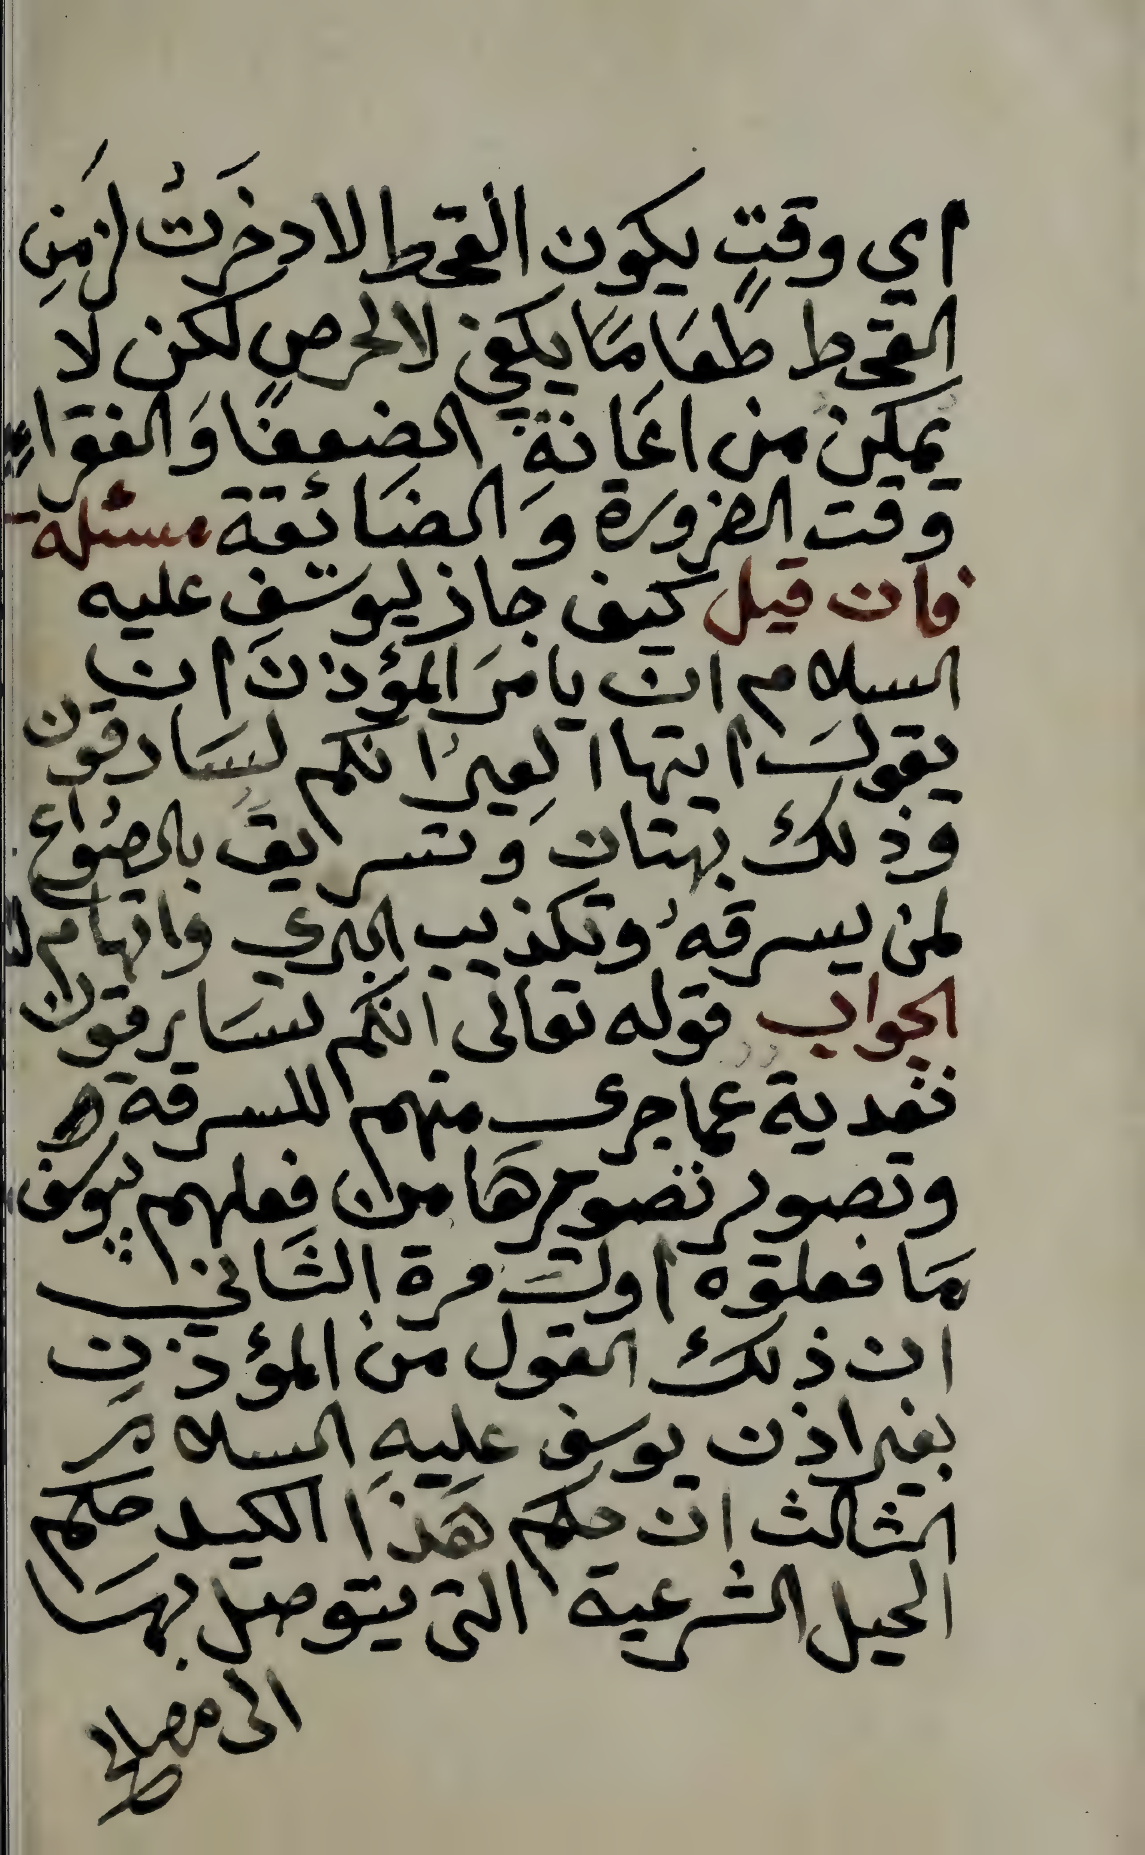 اي وقتٍ يكون القحط لادخرَتُ لزمَنِ
القحط طعَامًا يكفي لا لحرصٍ لكن لا
يمكن من اعَانةِ الضعفًا وَالفقراء
وقت الضرورة وَالضَائقة مسئلة
فان قيل كيف جاز ليوسف عليه
السلام ان يامَر المؤذن ان
يقولَ ايتها العير انكم لسَارقون
وذلك بهتان وَتسريقَ بالصُوَاع
لمن يسرقهُ وتكذيب البري واتهام
الجواب قوله تعالى انكم لسَارقون
تعدية عما جرى منهم للسرقة
وتصور تصويرهَا من فعلهم بيوسف
مَا فعلوه اولَ مرة الثَاني
ان ذلك القول من المؤذنِ
بغير اذن يوسف عليهِ السلام
الثالث ان حكم هَذا الكيد حكم
الحيل الشرعية التي يتوصل بهَا
الى مصالح